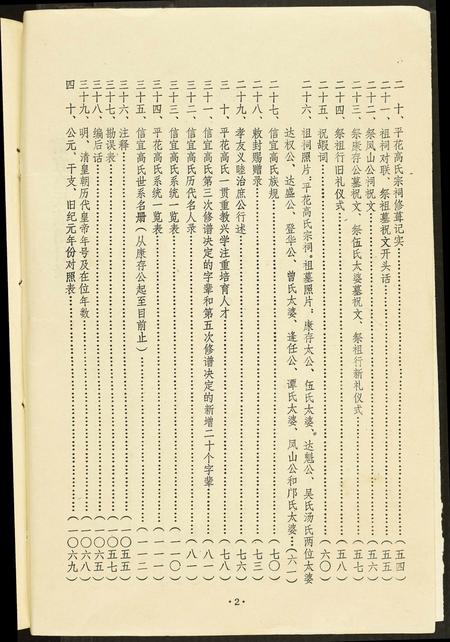 二十、平花高氏宗祠修葺记实……(五四)
二十一、祖祠对联、祭祖墓祝文开头话……(五五)
二十二、祭凤山公祠祝文……(五六)
二十三、祭康存公墓祝文、祭伍氏太婆墓祝文、祭祖行新礼仪式……(五七)
二十四、祭祖行旧礼仪式……(五八)
二十五、祝嘏词……(六〇)
二十六、祖祠照片：平花高氏宗祠。祖墓照片：康存太公、伍氏太婆。达魁公、吴氏汤氏两位太婆
达权公、达盛公、登华公、曾氏太婆、逢任公、谭氏太婆、凤山公和邝氏太婆……(六一)
二十七、信宜高氏族规……(七〇)
二十八、敕封赐赠录……(七三)
二十九、孝友义睦治庶公行述……(七六)
三十、平花高氏一贯重教兴学注重培育人才……(七八)
三十一、信宜高氏第三次修谱决定的字辈和第五次修谱决定的新增二十个字辈……(八一)
三十二、信宜高氏历代名人录……(八一)
三十三、信宜高氏系统一览表……(一一〇)
三十四、平花高氏系统一览表……(一一一)
三十五、信宜高氏世系名册(从康存公起至目前止)……(一一二)
三十六、注释……(一〇五五)
三十七、勘误表……(一〇五七)
三十八、编后话……(一〇六五)
三十九、明、清皇朝历代皇帝年号及在位年数……(一〇六八)
四十、公元、干支、旧纪元年份对照表……(一〇六九)
·2·